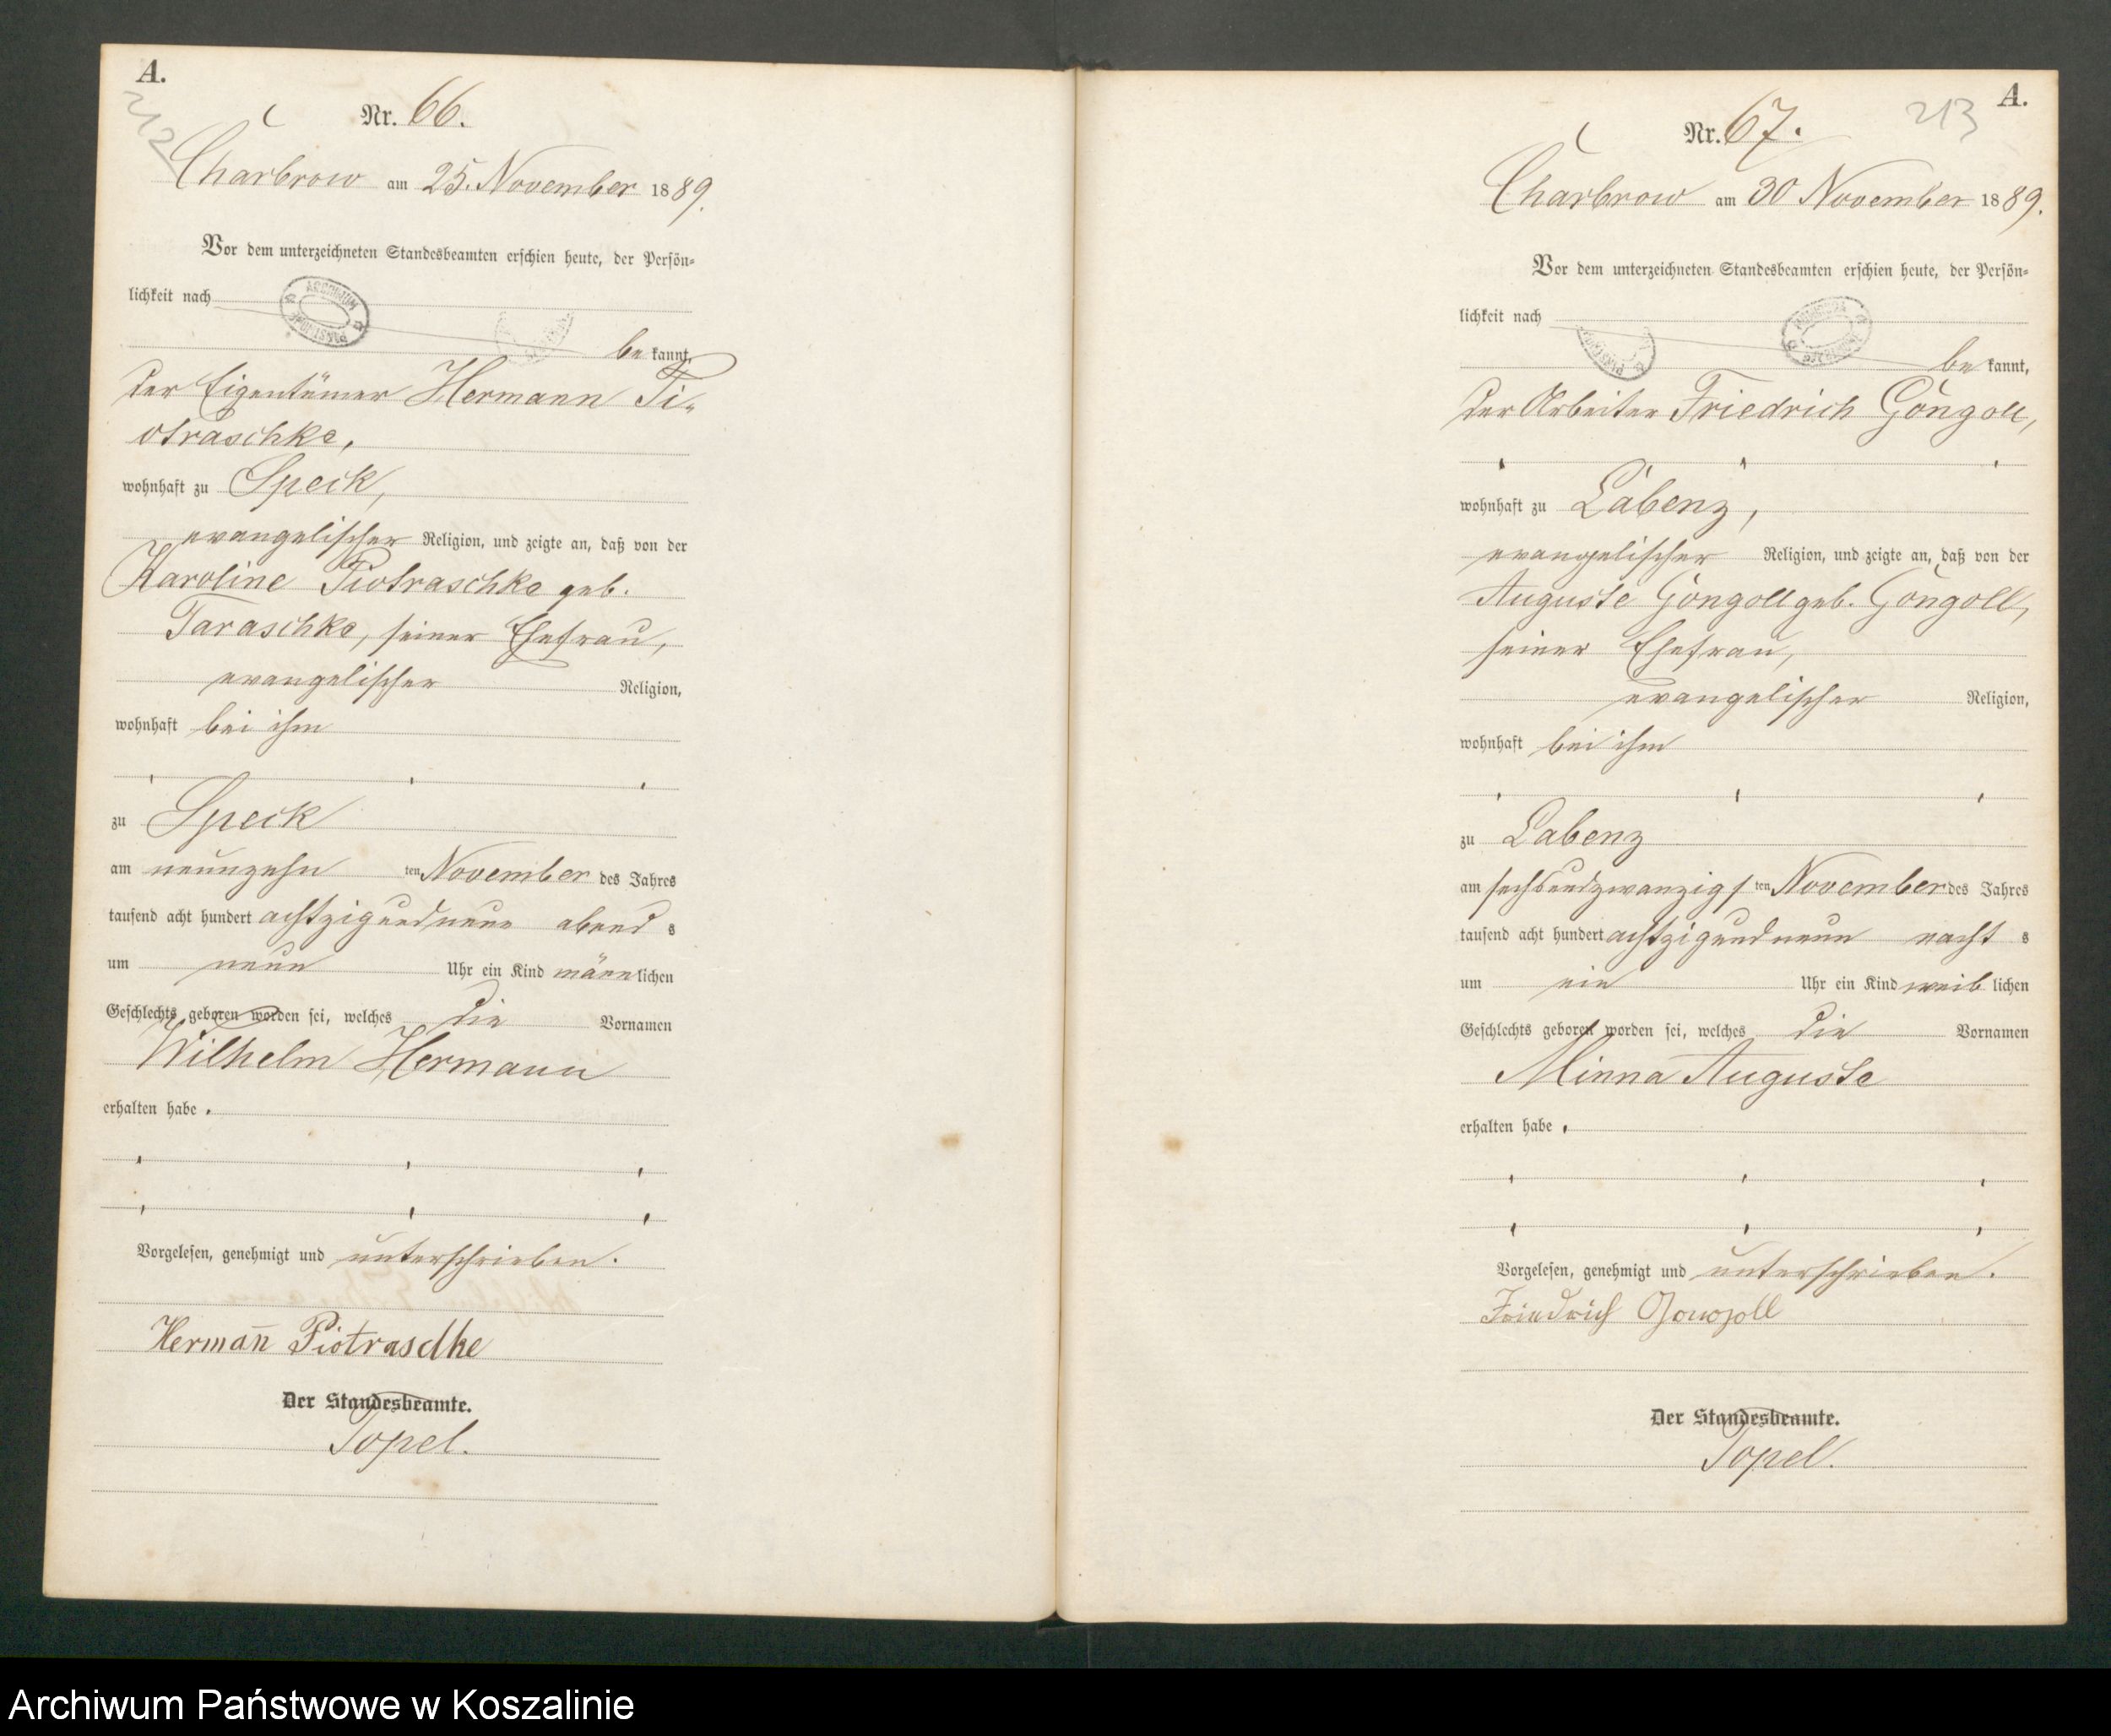 A.
212
Nr. 66.
Charbrow am 25. November 1889.
Vor dem unterzeichneten Standesbeamten erschien heute, der Persön-
lichkeit nach
be kannt,
der Eigentümer Hermann Pi-
otraschke,
wohnhaft zu Speck,
evangelischer Religion, und zeigte an, daß von der
Karoline Piotraschke geb.
Taraschke, seiner Ehefrau,
evangelischer Religion,
wohnhaft bei ihm
zu Speck
am neunzehn ten November des Jahres
tausend acht hundert achtzig und neun abend s
um neun Uhr ein Kind männlichen
Geschlechts geboren worden sei, welches die Vornamen
Wilhelm Hermann
erhalten habe.
Vorgelesen, genehmigt und unterschrieben.
Herman̄ Piotraschke
Der Standesbeamte.
Popel.
A.
213
Nr. 67.
Charbrow am 30 November 1889.
Vor dem unterzeichneten Standesbeamten erschien heute, der Persön-
lichkeit nach
be kannt,
der Arbeiter Friedrich Göngoll,
wohnhaft zu Labenz,
evangelischer Religion, und zeigte an, daß von der
Auguste Göngoll geb. Göngoll,
seiner Ehefrau,
evangelischer Religion,
wohnhaft bei ihm
zu Labenz
am sechsundzwanzigs ten November des Jahres
tausend acht hundert achtzig und neun nacht s
um ein Uhr ein Kind weib lichen
Geschlechts geboren worden sei, welches die Vornamen
Minna Auguste
erhalten habe.
Vorgelesen, genehmigt und unterschrieben.
Friedrich Gongoll
Der Standesbeamte.
Popel.
Archiwum Państwowe w Koszalinie